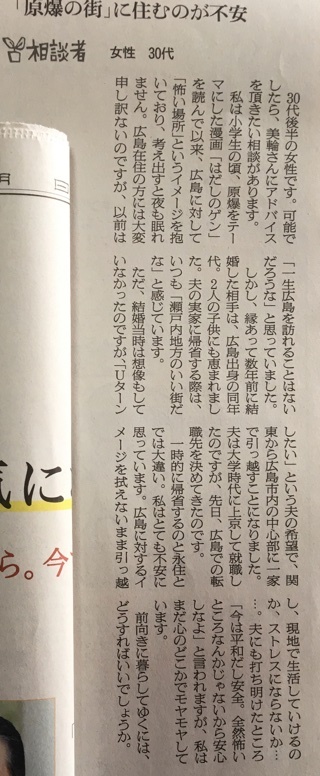 「原爆の街」に住むのが不安
相談者 女性 30代
30代後半の女性です。可能で
したら、美輪さんにアドバイス
を頂きたい相談があります。
私は小学生の頃、原爆をテー
マにした漫画「はだしのゲン」
を読んで以来、広島に対して
「怖い場所」というイメージを抱
いており、考え出すと夜も眠れ
ません。広島在住の方には大変
申し訳ないのですが、以前は
「一生広島を訪れることはない
だろうな」と思っていました。
しかし、縁あって数年前に結
婚した相手は、広島出身の同年
代。2人の子供にも恵まれまし
た。夫の実家に帰省する際は、
いつも「瀬戸内地方のいい街だ
な」と感じています。
ただ、結婚当時は想像もして
いなかったのですが、「Uターン
したい」という夫の希望で、関
東から広島市内の中心部に一家
で引っ越すことになりました。
夫は大学時代に上京して就職し
たのですが、先日、広島での転
職先を決めてきたのです。
一時的に帰省するのと永住と
では大違い。私はとても不安に
思っています。広島に対するイ
メージを拭えないまま引っ越
し、現地で生活していけるの
か、ストレスにならないか…
…。夫にも打ち明けたところ
「今は平和だし安全。全然怖い
ところなんかじゃないから安心
しなよ」と言われますが、私は
まだ心のどこかでモヤモヤして
います。
前向きに暮らしてゆくには、
どうすればいいでしょうか。
月 日
気に
ら。今